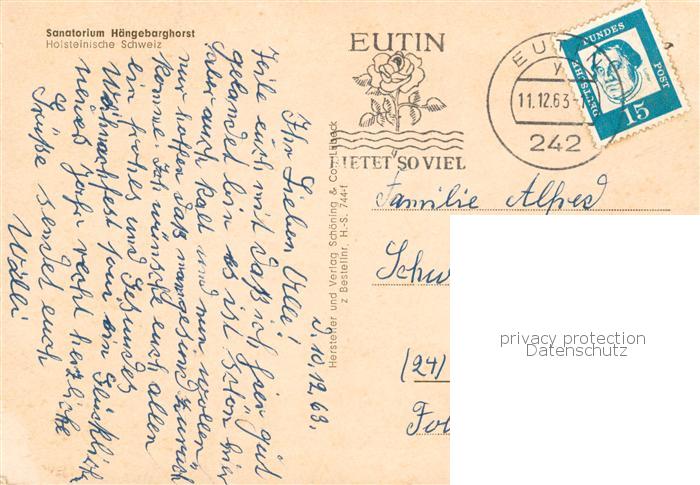 Sanatorium Hängebarghorst
Holsteinische Schweiz
EUTIN
BIETET SO VIEL
EUTIN
11.12.63-
242
DEUTSCHE BUNDESPOST
15
Hersteller und Verlag Schöning & Co., Lübeck
z Bestellnr. H.-S. 744-f
D. 10.12.63.
Ihr Lieben Alle!
Teile euch mit daß ich hier gut
gelandet bin es ist schön hier
aber auch kalt und nun wollen
nur hoffen daß man gesund zurück
komme. Ich wünsche euch allen
ein frohes und Gesundes
Weihnachtsfest sowie ein Glückliches
neues Jahr recht herzliche
Grüße sendet euch
Willi
Familie Alfred
Schw
(24)
privacy protection
Datenschutz